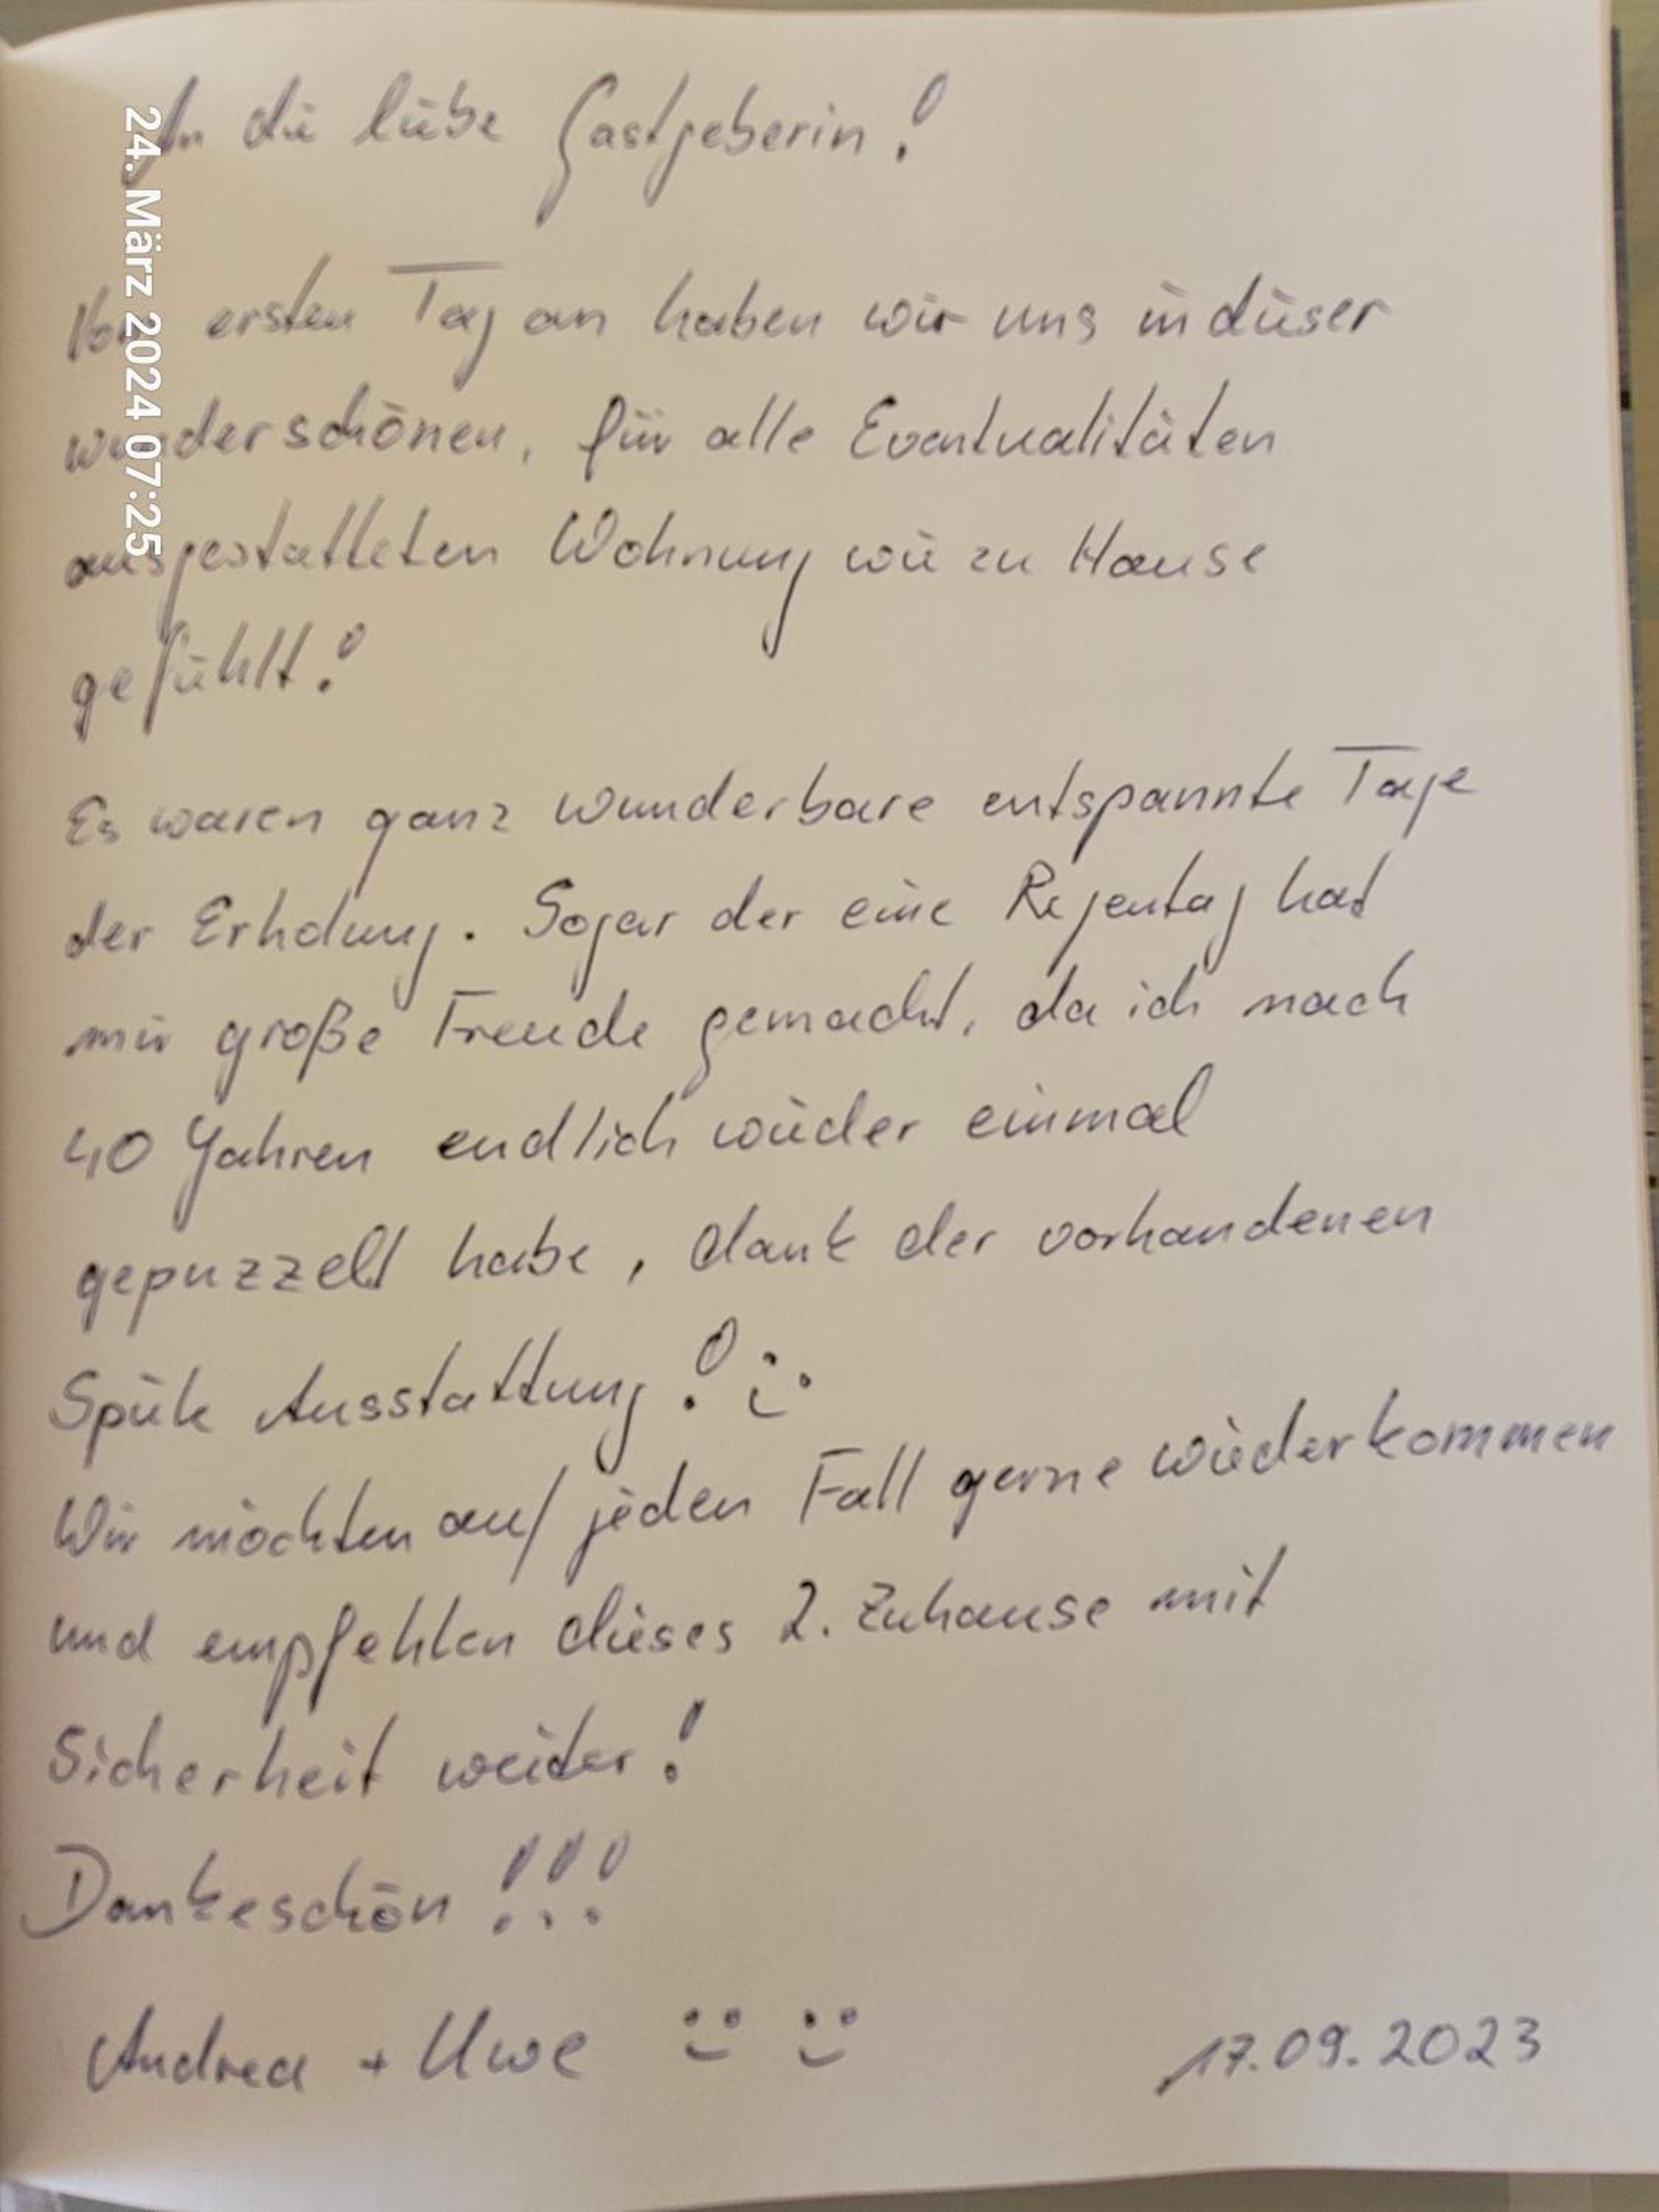 An die liebe Gastgeberin!
Vom ersten Tag an haben wir uns in dieser
wunderschönen, für alle Eventualitäten
ausgestatteten Wohnung wie zu Hause
gefühlt!
Es waren ganz wunderbare entspannte Tage
der Erholung. Sogar der eine Regentag hat
mir große Freude gemacht, da ich nach
40 Jahren endlich wieder einmal
gepuzzelt habe, dank der vorhandenen
Spiele Ausstattung! :)
Wir möchten auf jeden Fall gerne wiederkommen
und empfehlen dieses 2. Zuhause mit
Sicherheit weiter!
Dankeschön!!!
Andrea + Uwe :) :) 17.09.2023
24. März 2024 07:25